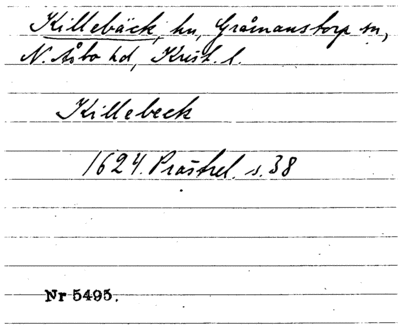 Killebäck, hn, Gråmanstorp sn,
N. Åsbo hd, Krist. l.
Killebeck
1624. Prästrel. s. 38
Nr 5495.